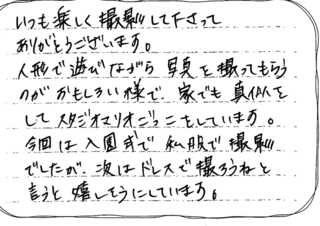 いつも楽しく撮影して下さって
ありがとうございます。
人形で遊びながら写真を撮ってもらう
のがおもしろい様で、家でも真似を
してスタジオマリオごっこをしています。
今回は入園式で私服で撮影
でしたが、次はドレスで撮ろうねと
言うと嬉しそうにしています。